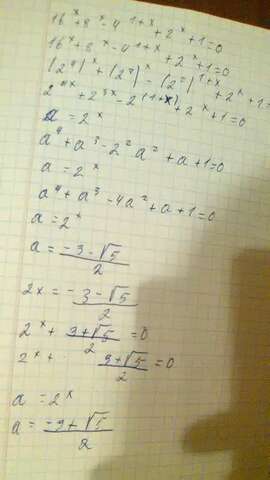 16^x + 8^x - 4^{1+x} + 2^x + 1 = 0
16^x + 8^x - 4^{1+x} + 2^x + 1 = 0
(2^4)^x + (2^3)^x - (2^2)^{1+x} + 2^x + 1 =
2^{4x} + 2^{3x} - 2^{2(1+x)} + 2^x + 1 = 0
a = 2^x
a^4 + a^3 - 2^2 a^2 + a + 1 = 0
a = 2^x
a^4 + a^3 - 4a^2 + a + 1 = 0
a = 2^x
a = \frac{-3 - \sqrt{5}}{2}
2x = \frac{-3 - \sqrt{5}}{2}
2^x + \frac{3 + \sqrt{5}}{2} = 0
2^x + \frac{3 + \sqrt{5}}{2} = 0
a = 2^x
a = \frac{-3 + \sqrt{5}}{2}